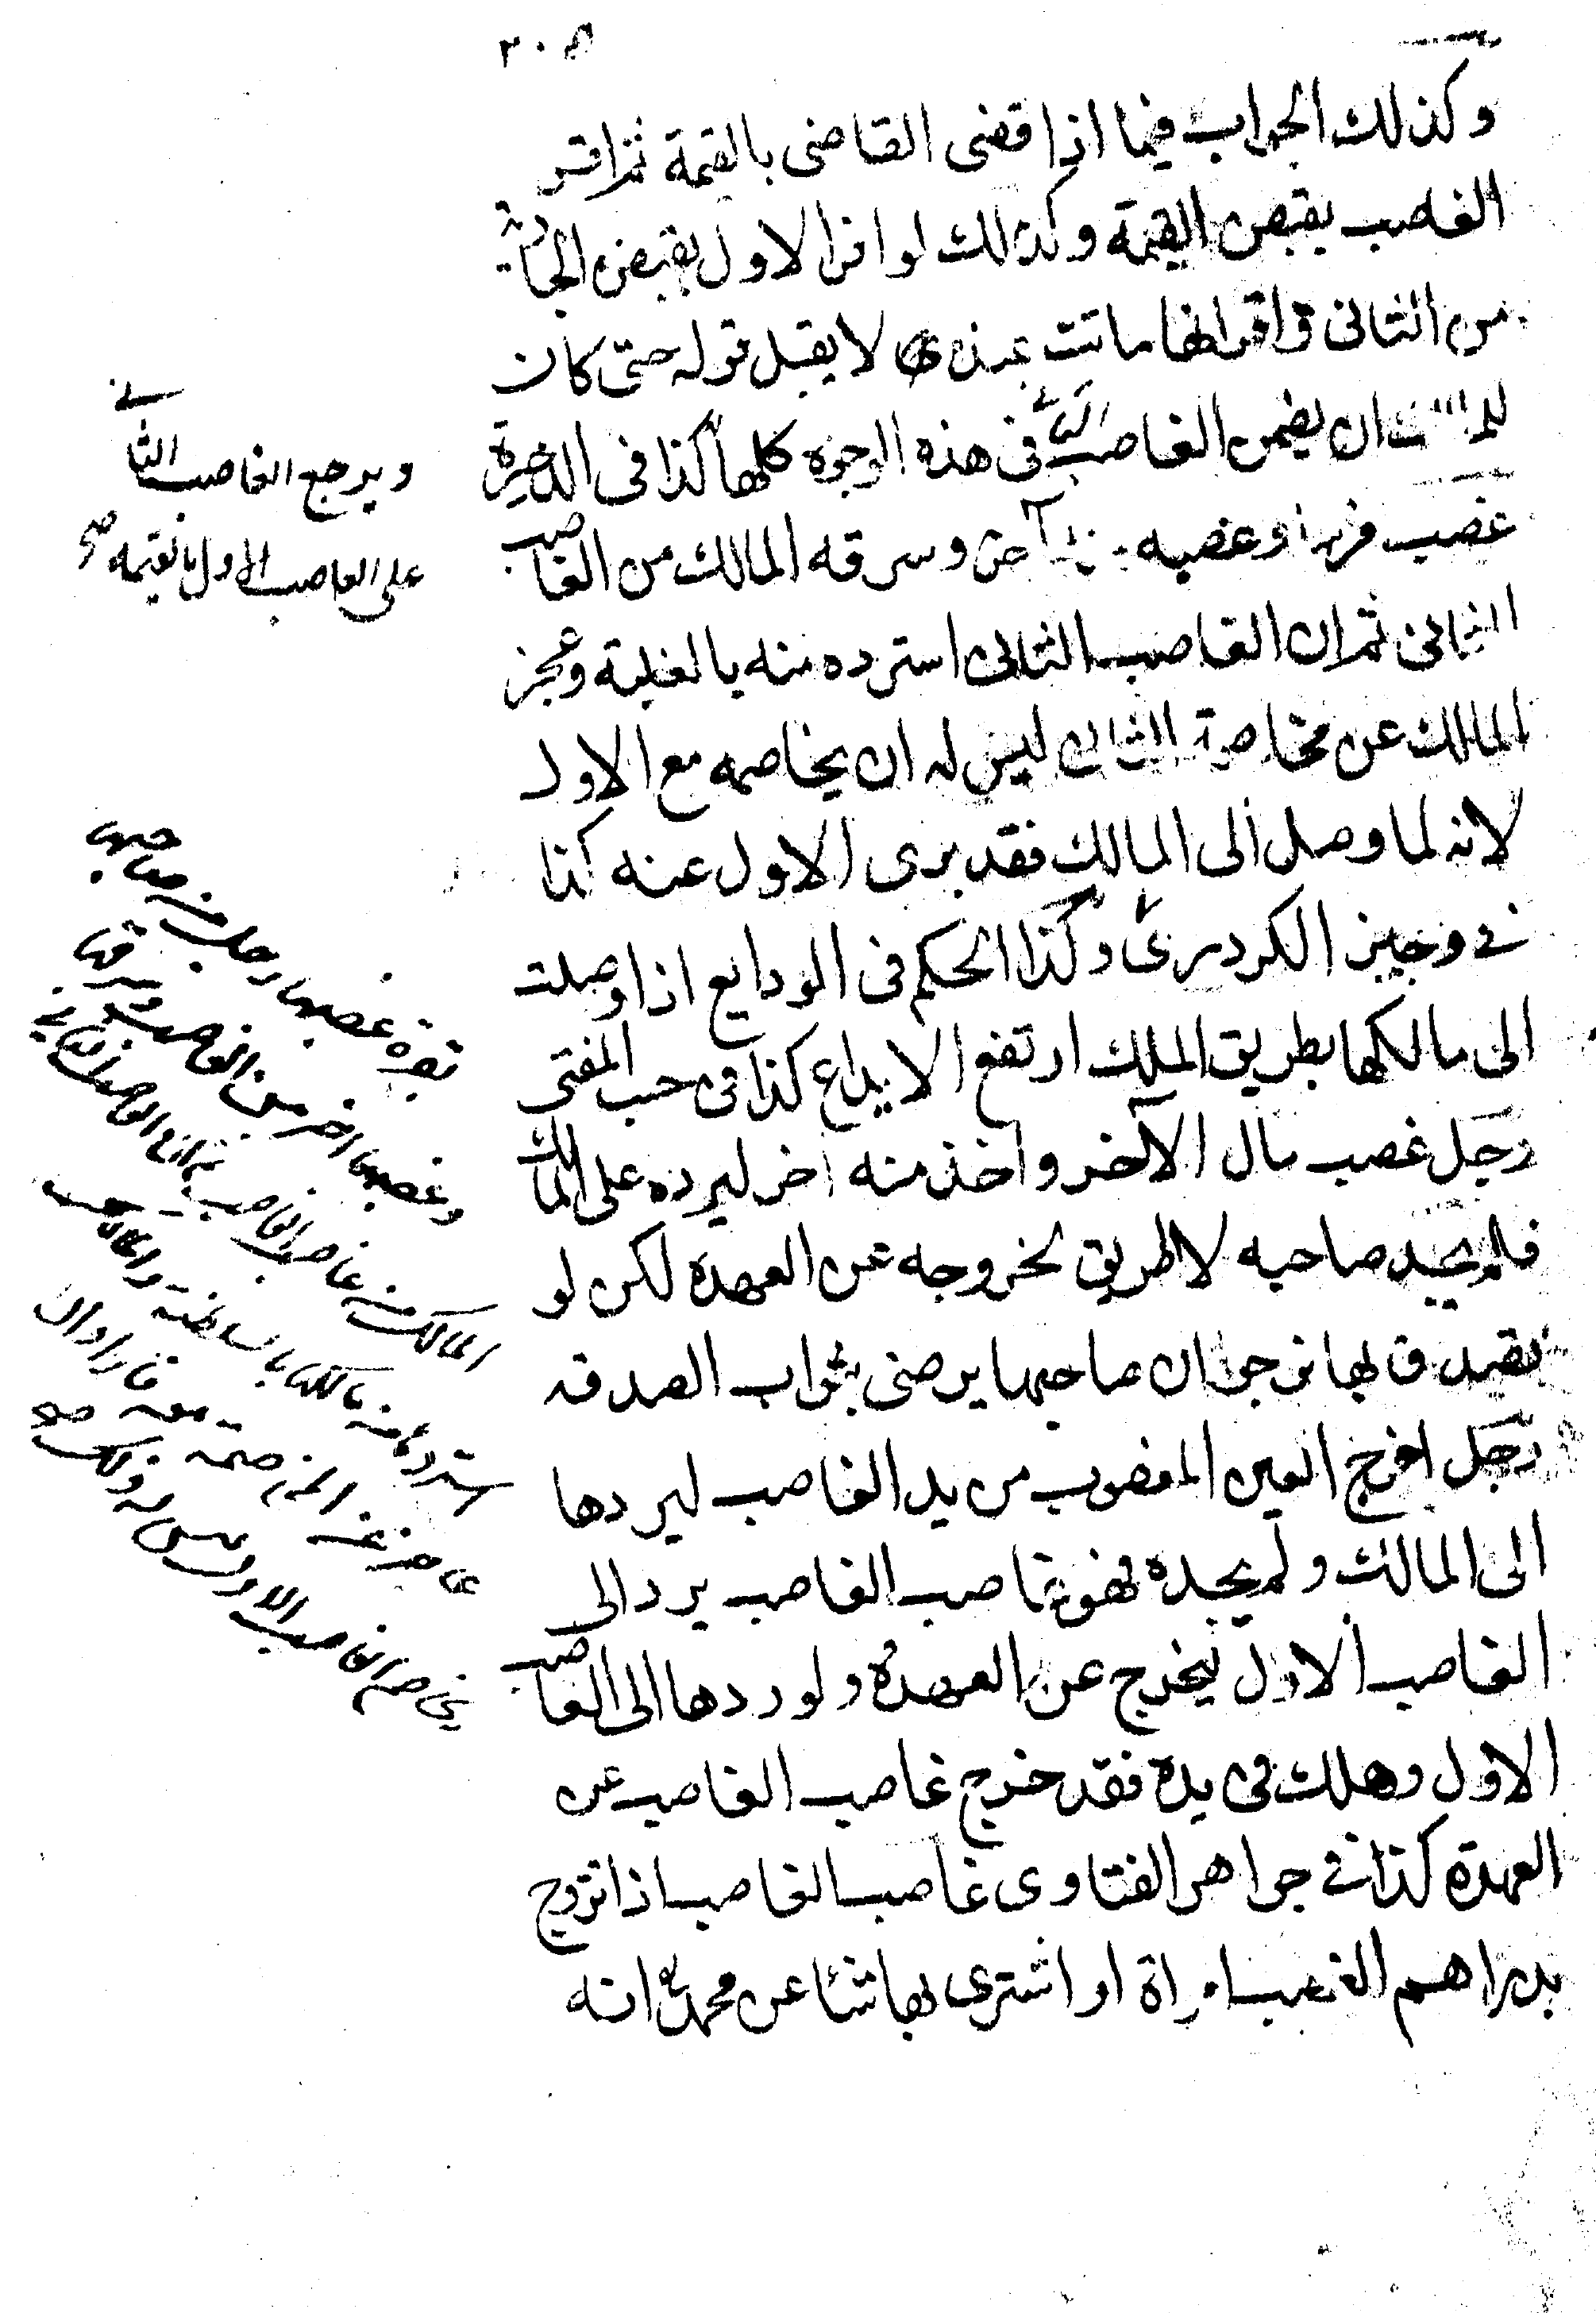 ٣٠٥
وكذلك الجواب فيما اذا قضى القاضى بالقيمة ثم اقر
الغاصب بقبض القيمة وكذلك لو اقر الاول بقبض الجارية
من الثانى واقر انها ماتت عنده لا يقبل قوله حتى كان
ان يضمن الغاصب الثانى فى هذه الوجوه كلها كذا فى الذخيرة
غصب وغصبه آخر وسرقه المالك من الغاصب
الثانى ثم ان الغاصب الثانى استرده منه بالغلبة وعجز
المالك عن مخاصمة الثانى ليس له ان يخاصمه مع الاول
لانه لما وصل الى المالك فقد برى الاول عنه كذا
فى وجيز الكردرى وكذا الحكم فى الودايع اذا وصلت
الى مالكها بطريق الملك ارتفع الايداع كذا فى حسب المفتى
رجل غصب مال الآخر واخذ منه آخر ليرده على المالك
فلم يجد صاحبه لا طريق لخروجه عن العهدة لكن لو
تصدق بها نرجو ان صاحبها يرضى بثواب الصدقه
رجل اخرج العين المغصوب من يد الغاصب ليردها
الى المالك ولم يجده فهو غاصب الغاصب يرد الى
الغاصب الاول ليخرج عن العهدة ولو ردها الى الغاصب
الاول وهلك فى يده فقد خرج غاصب الغاصب عن
العهدة كذا فى جواهر الفتاوى غاصب الغاصب اذا تزوج
بدراهم الغصب امراة او اشترى بها شئا عن محمد انه
ويرجع الغاصب الثانى
على الغاصب الاول بالقيمه صح
بقرة غصبها رجل من صاحبها
وغصبها اخر من الغاصب وسرقها
المالك من غاصب الغاصب ثم ان الغاصب الثانى
استردها من مالكها بالسلطنة والمالك
عاجز عن المخاصمة معه فاراد ان
يخاصم الغاصب الاول ليس له ذلك صح